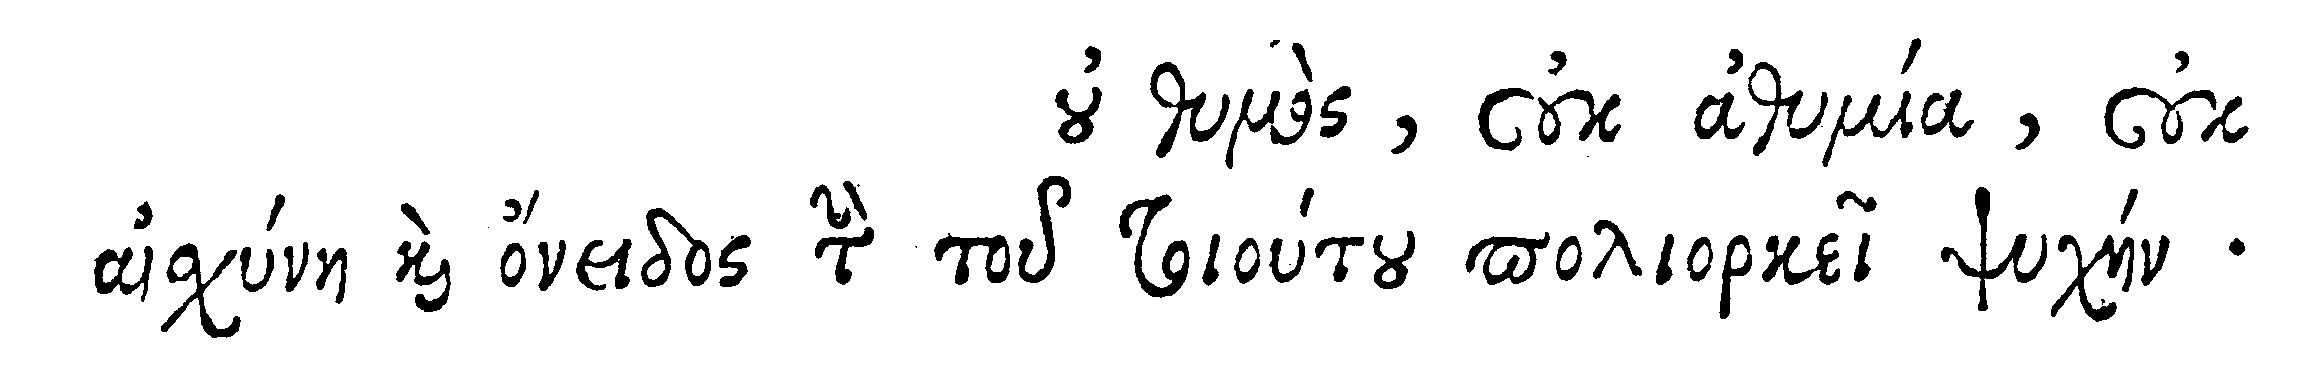 οὐ θυμὸς, οὐκ ἀθυμία, οὐκ
αἰσχύνη καὶ ὄνειδος τὴν τοῦ τοιούτου πολιορκεῖ ψυχήν.